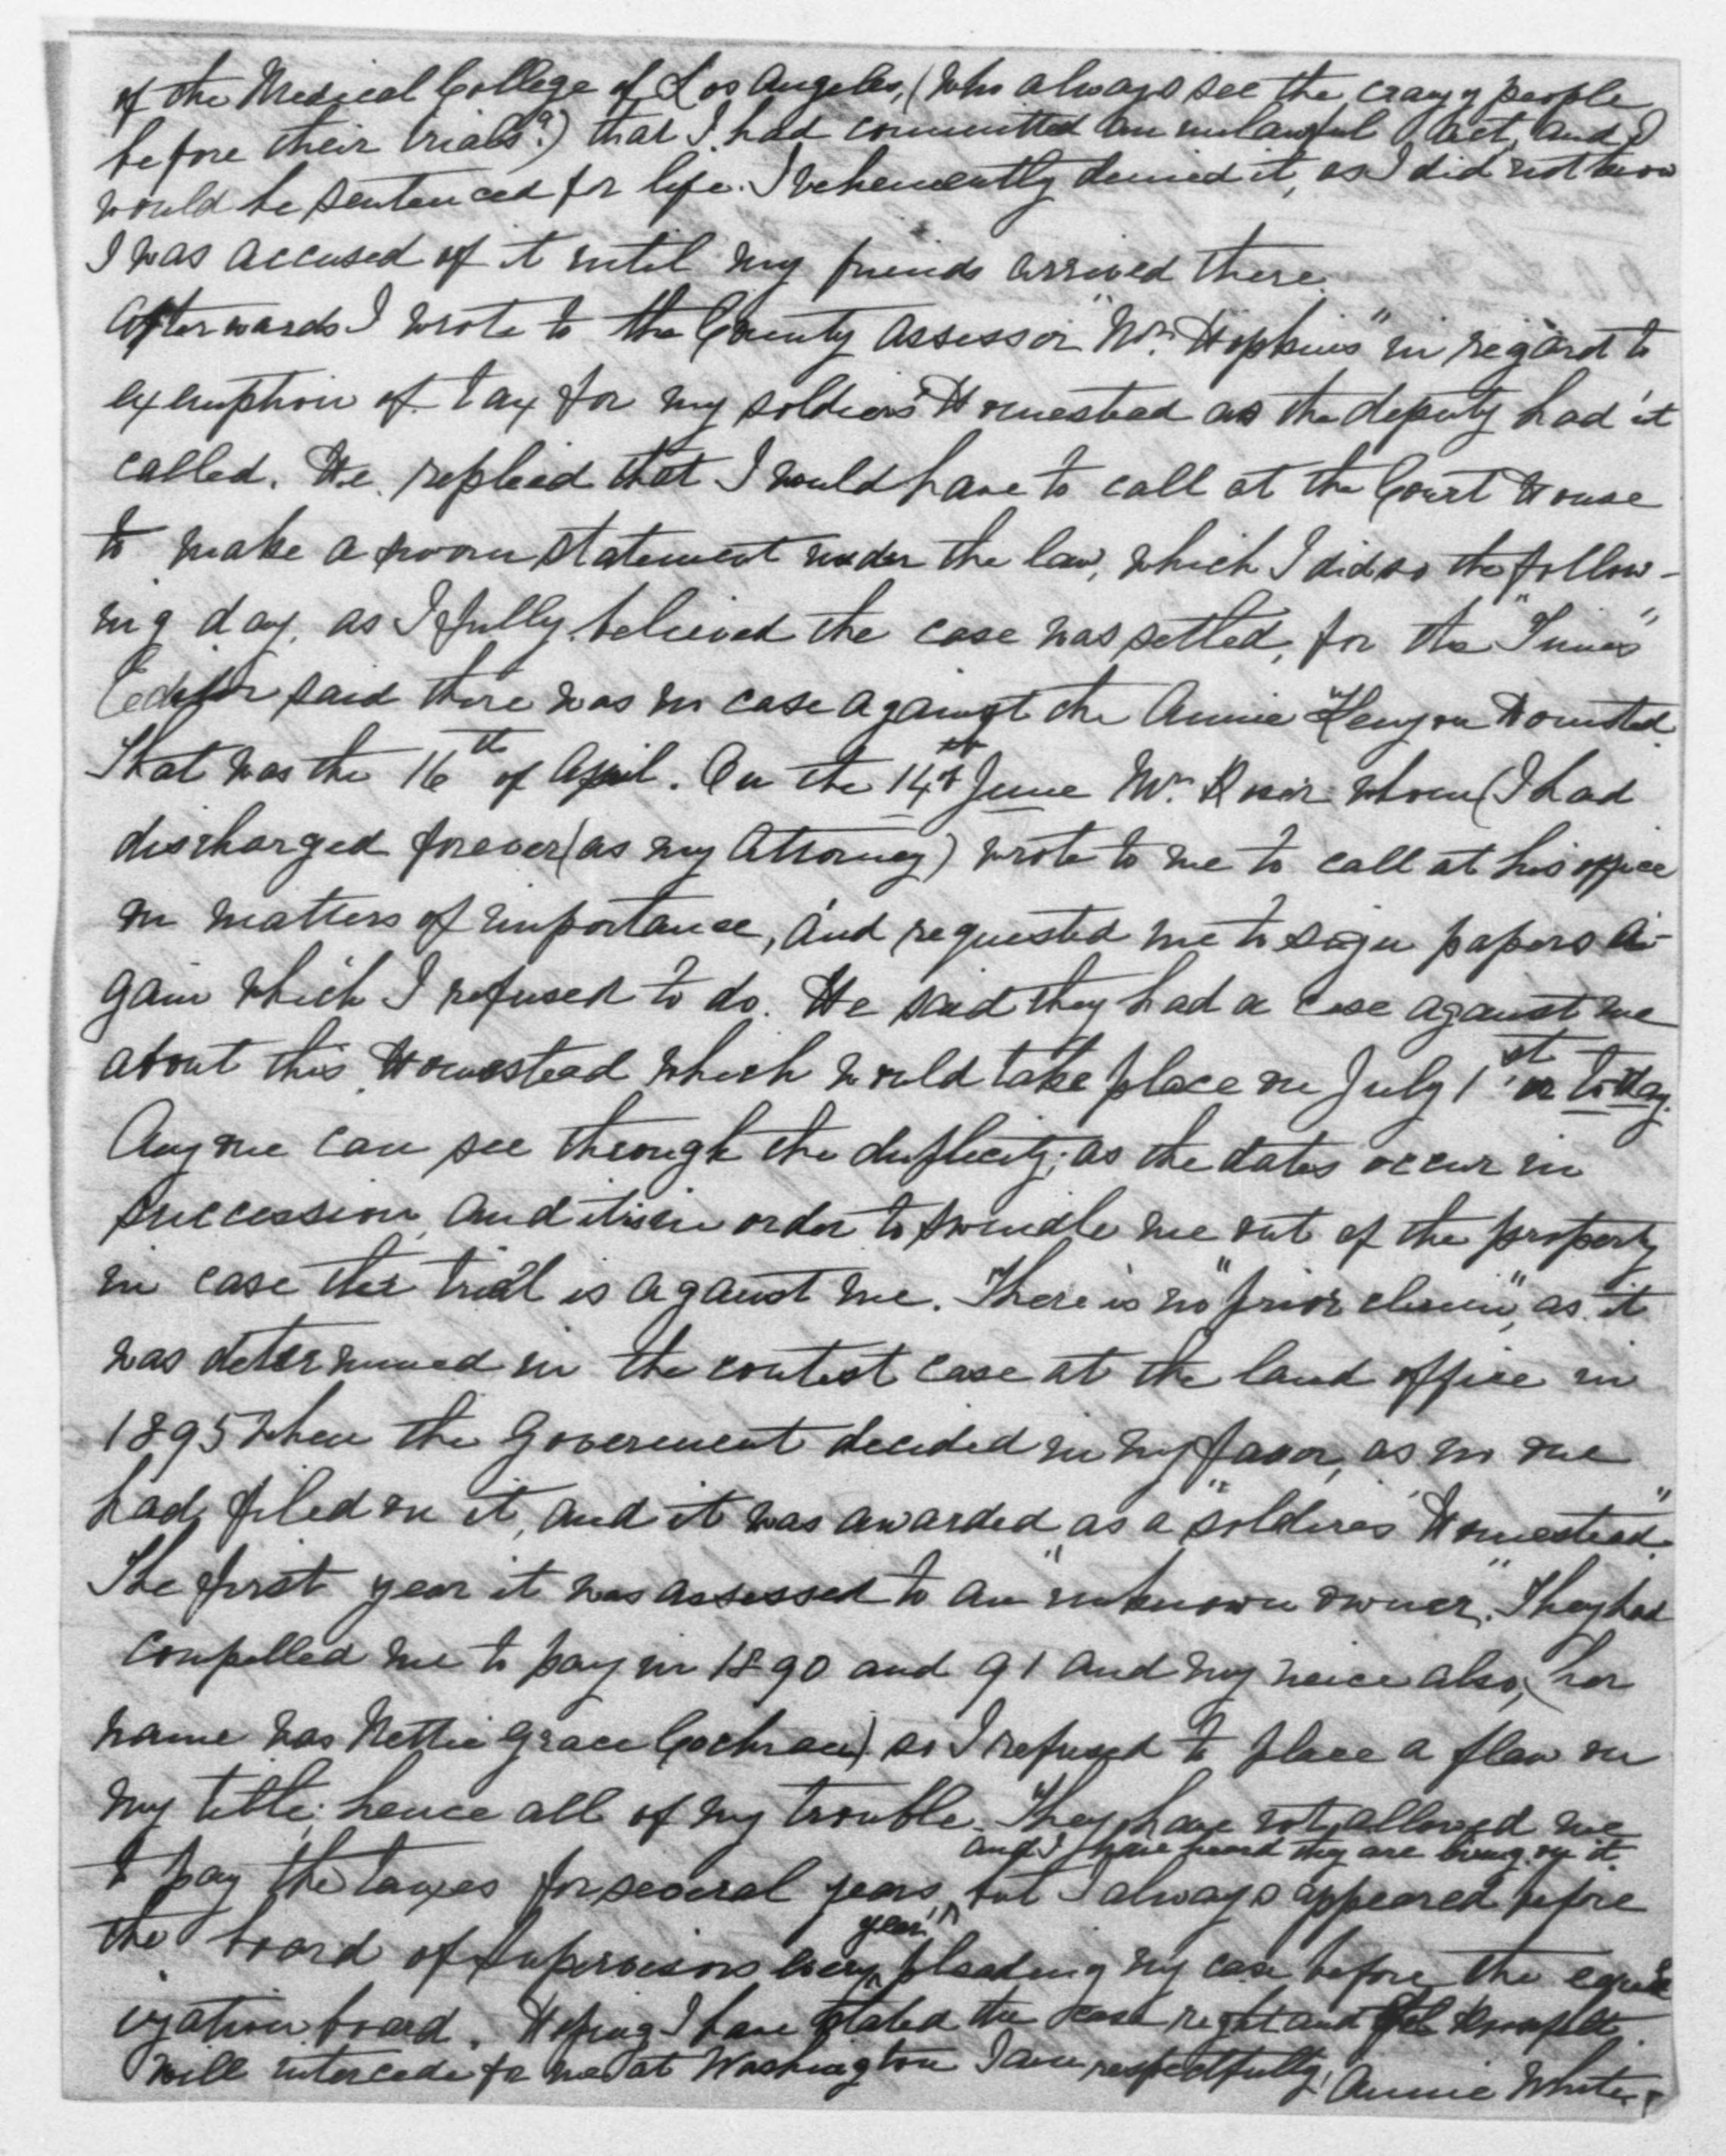 of the Medical College of Los Angeles, (who always see the crazy people
before their trials?) that I had committed an unlawful act, and I
would be sentenced for life. I vehemently denied it, as I did not know
I was accused of it until my friends arrived there.
Afterwards I wrote to the County Assessor "Mr. Hopkins" in regard to
exemption of tax for my soldiers Homestead as the deputy had it
called. He replied that I would have to call at the Court House
to make a sworn statement under the law, which I did so the follow-
ing day, as I fully believed the case was settled, for the "Times"
Editor said there was no case against the Annie Kenyon Homsted.
That was the 16th of April. On the 14th of June Mr. whom (I had
discharged forever (as my Attorney) wrote to me to call at his office
on matters of importance, and requested me to sign papers a-
gain which I refused to do. He said they had a case against me
about this Homestead which would take place on July 1st or to day.
Any one can see through the duplicity, as the dates occur in
succession, and it is in order to swindle me out of the property
in case the trial is against me. There is no "prior claim", as it
was determined in the contest case at the land office in
1895 when the Goverement decided in my favor, as no one
had filed on it, and it was awarded as a "soldiers Homestead."
The first year it was assessed to an "unknown owner". They had
compelled me to pay in 1890 and 91 and my neice also, (her
name was Nettie Grace Cochran) so I refused to place a flaw on
my title; hence all of my trouble. They have not allowed me
and I have heard they are living on it.
to pay the taxes for several years, but I always appeared before
the board of Supervisors every year pleading my case before the equal
ization board. Hoping I have stated the case right and
will intercede for me at Washington I am respectfully, Annie White.